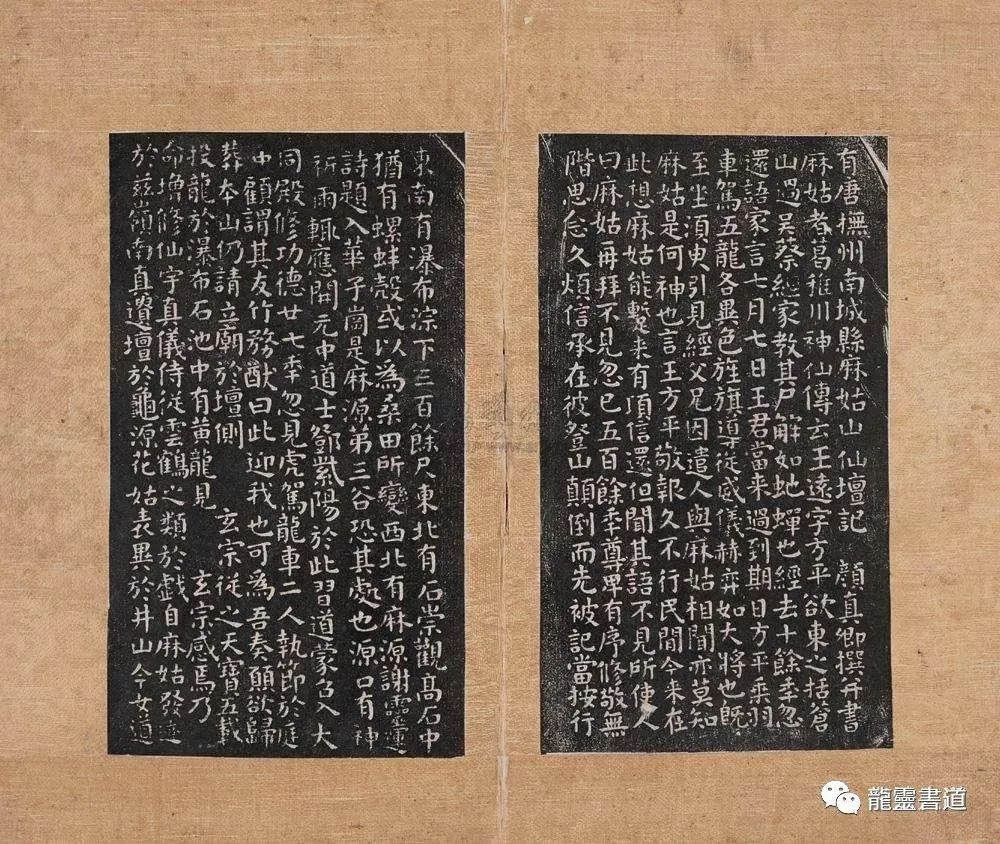 有唐撫州南城縣麻姑山仙壇記 顏真卿撰并書
麻姑者葛稚川神仙傳云王遠字方平欲東之括蒼
山過吳蔡經家教其尸解如虵蟬也經去十餘年忽
還語家言七月七日王君當来過到期日方平乘羽
車駕五龍各異色旌旗導從威儀赫弈如大將也既
至坐須臾引見經父兄因遣人與麻姑相聞亦莫知
麻姑是何神也言王方平敬報久不行民間今来在
此想麻姑能蹔来有頃信還但聞其語不見所使人
曰麻姑再拜不見忽已五百餘年尊卑有序修敬無
階思念久煩信承在彼登山顛倒而先被記當按行
東南有瀑布淙下三百餘尺東北有石崇觀高石中
猶有螺蚌殻或以為桑田所變西北有麻源謝靈運
詩題入華子崗是麻源第三谷恐其處也源口有神
祈雨輒應開元中道士鄧紫陽於此習道蒙召入大
同殿修功德廿七年忽見虎駕龍車二人執節於庭
中顧謂其友竹務猷曰此迎我也可為吾奏願欲歸
葬本山仍請立廟於壇側 玄宗從之天寶五載
投龍於瀑布石池中有黃龍見 玄宗感焉乃
命增修仙宇真儀侍從雲鶴之類於戲自麻姑發迹
於茲嶺南真遺壇於龜源花姑表異於井山今女道
龍靈書道